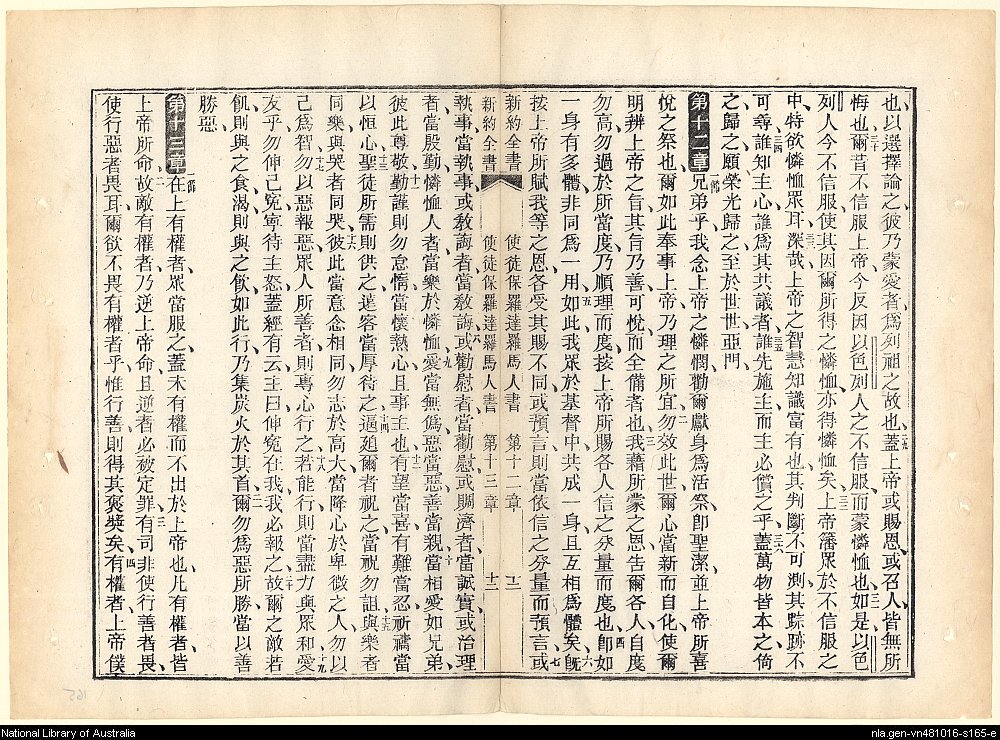 也以選擇論之彼乃蒙愛者爲列祖之故也二九蓋上帝或賜恩或召人皆無所
悔也三十爾昔不信服上帝今反因以色列人之不信服而蒙憐恤也三一如是以色
列人今不信服使其因爾所得之憐恤亦得憐恤矣三二上帝籓眾於不信服之
中特欲憐恤眾耳三三深哉上帝之智慧知識富有也其判斷不可測其踪跡不
可尋三四誰知主心誰爲其共議者三五誰先施主而主必償之乎三六蓋萬物皆本之倚
之歸之願榮光歸之至於世世亞門
第十二章一節兄弟乎我念上帝之憐憫勸爾獻身爲活祭卽聖潔並上帝所喜
悅之祭也爾如此奉事上帝乃理之所宜二勿效此世爾心當新而自化使爾
明辨上帝之旨其旨乃善可悅而全備者也三我藉所蒙之恩告爾各人自度
勿高勿過於所當度乃順理而度按上帝所賜各人信之分量而度也四卽如
一身有多體體非同爲一用五如此我眾於基督中共成一身且互相爲體矣六旣
按上帝所賦我等之恩各受其賜不同或預言則當依信之分量而預言七或
新約全書 使徒保羅達羅馬人書 第十二章 十二
新約全書 使徒保羅達羅馬人書 第十三章 十二
執事當執事或敎誨者當敎誨八或勸慰者當勸慰或賙濟者當誠實或治理
者當殷勤憐恤人者當樂於憐恤九愛當無僞惡當惡善當親十當相愛如兄弟
彼此尊敬十一勤謹則勿怠惰當懷熱心且事主也十二有望當喜有難當忍祈禱當
以恒心十三聖徒所需則供之遠客當厚待之十四逼廹爾者祝之當祝勿詛十五與樂者
同樂與哭者同哭十六彼此當意念相同勿志於高大當降心於卑微之人勿以
己爲智十七勿以惡報惡眾人所善者則專心行之十八若能行則當盡力與眾和十九愛
友乎勿伸己寃寧待主怒蓋經有云主曰伸寃在我我必報之二十故爾之敵若
飢則與之食渴則與之飲如此行乃集炭火於其首二一爾勿爲惡所勝當以善
勝惡
第十三章一節在上有權者眾當服之蓋未有權而不出於上帝也凡有權者皆
上帝所命二故敵有權者乃逆上帝命且逆者必被定罪三有司非使行善者畏
使行惡者畏耳爾欲不畏有權者乎惟行善則得其褒奬矣四有權者上帝僕
National Library of Australia
nla.gen-vn481016-s165-e